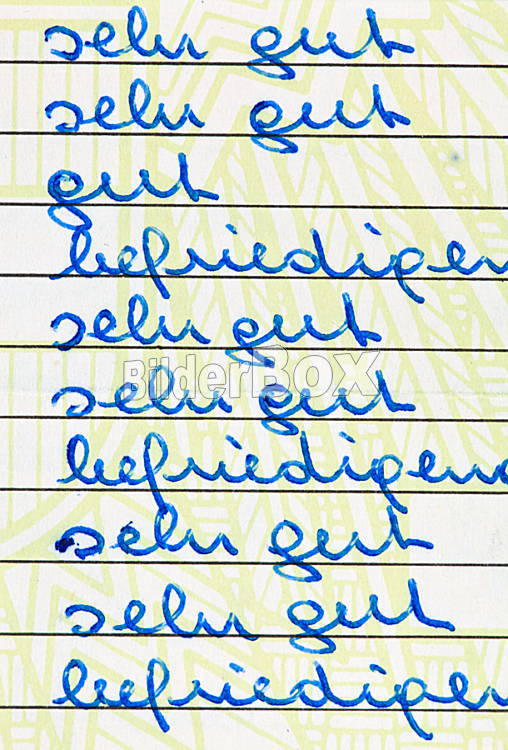 sehr gut
sehr gut
gut
befriedigen
sehr gut
BilderBOX
sehr gut
befriedigend
sehr gut
sehr gut
befriedigen